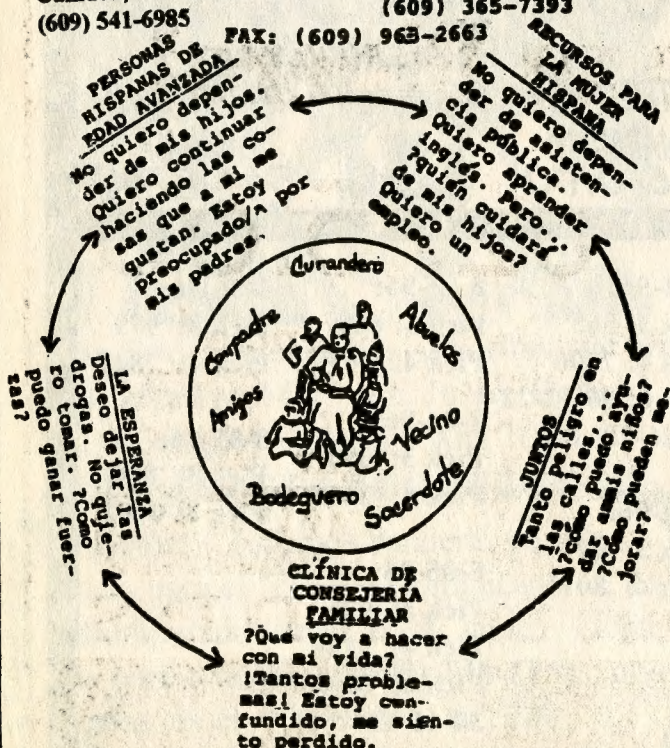 (609) 541-6985
(609) 365-7393
FAX: (609) 963-2663
PERSONAS
HISPANAS DE
EDAD AVANZADA
No quiero depen-
der de mis hijos.
Quiero continuar
haciendo las co-
sas que a mi me
gustan. Estoy
preocupado/^ por
mis padres.
RECURSOS PARA
LA MUJER
HISPANA
No quiero depen-
der de asisten-
cia pública.
Quiero aprender
inglés. Pero...
?quién cuidará
de mis hijos?
Quiero un
empleo.
Curandero
Compadre
Abuelos
Amigos
Vecino
Bodeguero
Sacerdote
LA ESPERANZA
Deseo dejar las
drogas. No quie-
ro tomar. ?Como
puedo ganar fuer-
zas?
JUNTOS
Tanto peligro en
las calles....
?cómo puedo ayu-
dar ammis niños?
?Cómo pueden me-
jorar?
CLÍNICA DE
CONSEJERÍA
FAMILIAR
?Que voy a hacer
con mi vida?
!Tantos proble-
mas! Estoy con-
fundido, me sien-
to perdido.